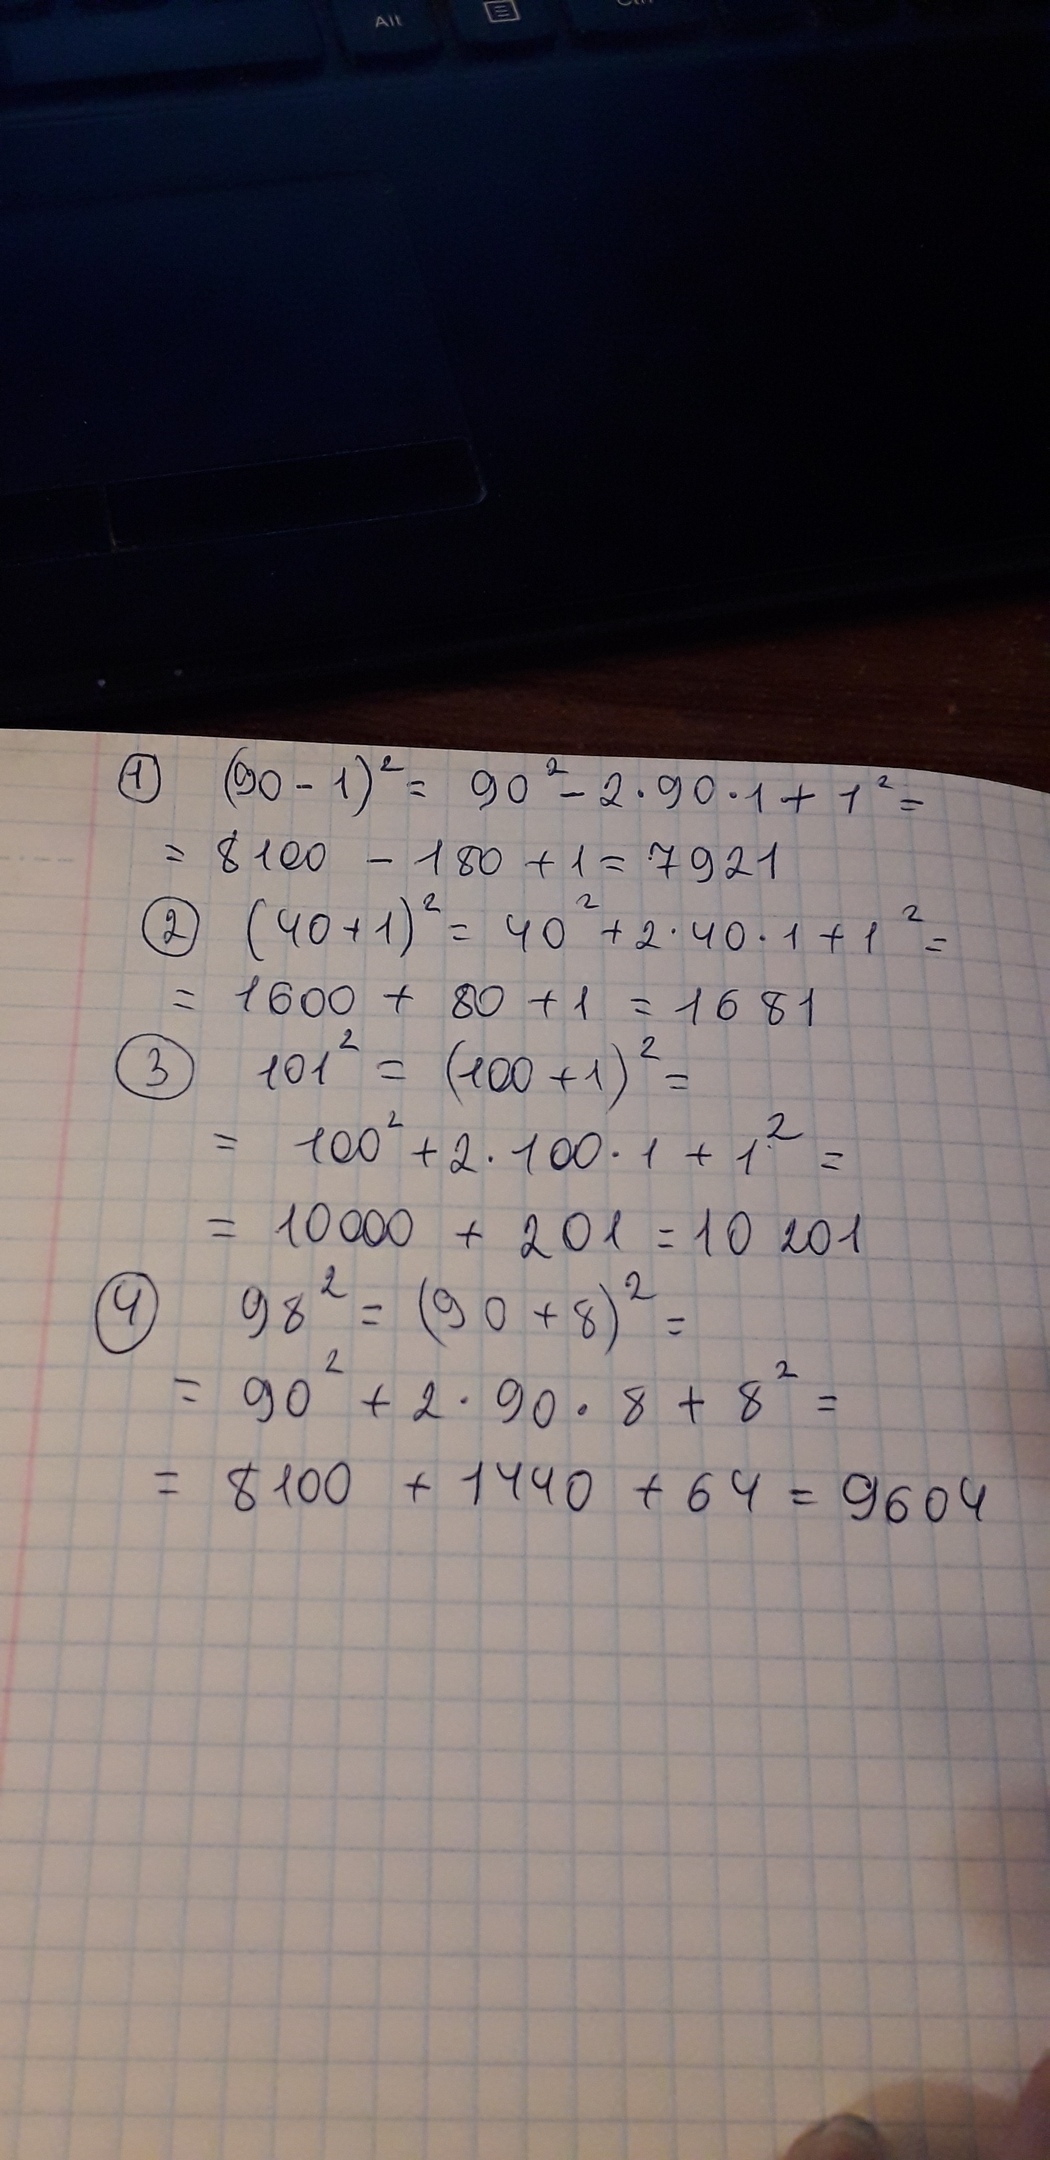 Alt
① (90-1)² = 90² - 2·90·1 + 1² =
= 8100 - 180 + 1 = 7921
② (40+1)² = 40² + 2·40·1 + 1² =
= 1600 + 80 + 1 = 1681
③ 101² = (100+1)² =
= 100² + 2·100·1 + 1² =
= 10000 + 201 = 10 201
④ 98² = (90+8)² =
= 90² + 2·90·8 + 8² =
= 8100 + 1440 + 64 = 9604